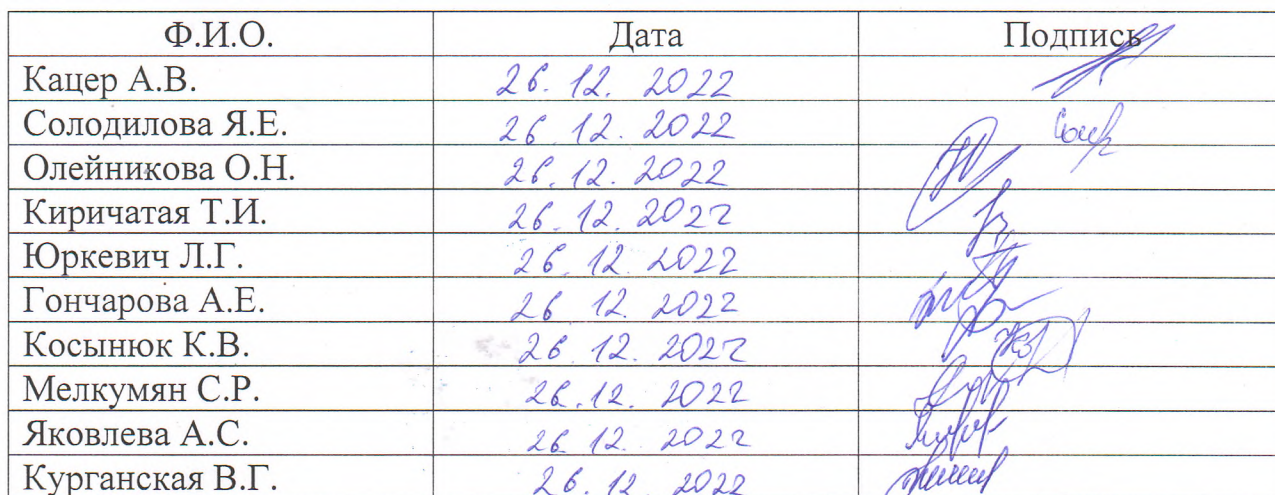 Ф.И.О. Дата Подпись
Кацер А.В. 26.12.2022
Солодилова Я.Е. 26.12.2022
Олейникова О.Н. 26.12.2022
Киричатая Т.И. 26.12.2022
Юркевич Л.Г. 26.12.2022
Гончарова А.Е. 26.12.2022
Косынюк К.В. 26.12.2022
Мелкумян С.Р. 26.12.2022
Яковлева А.С. 26.12.2022
Курганская В.Г. 26.12.2022